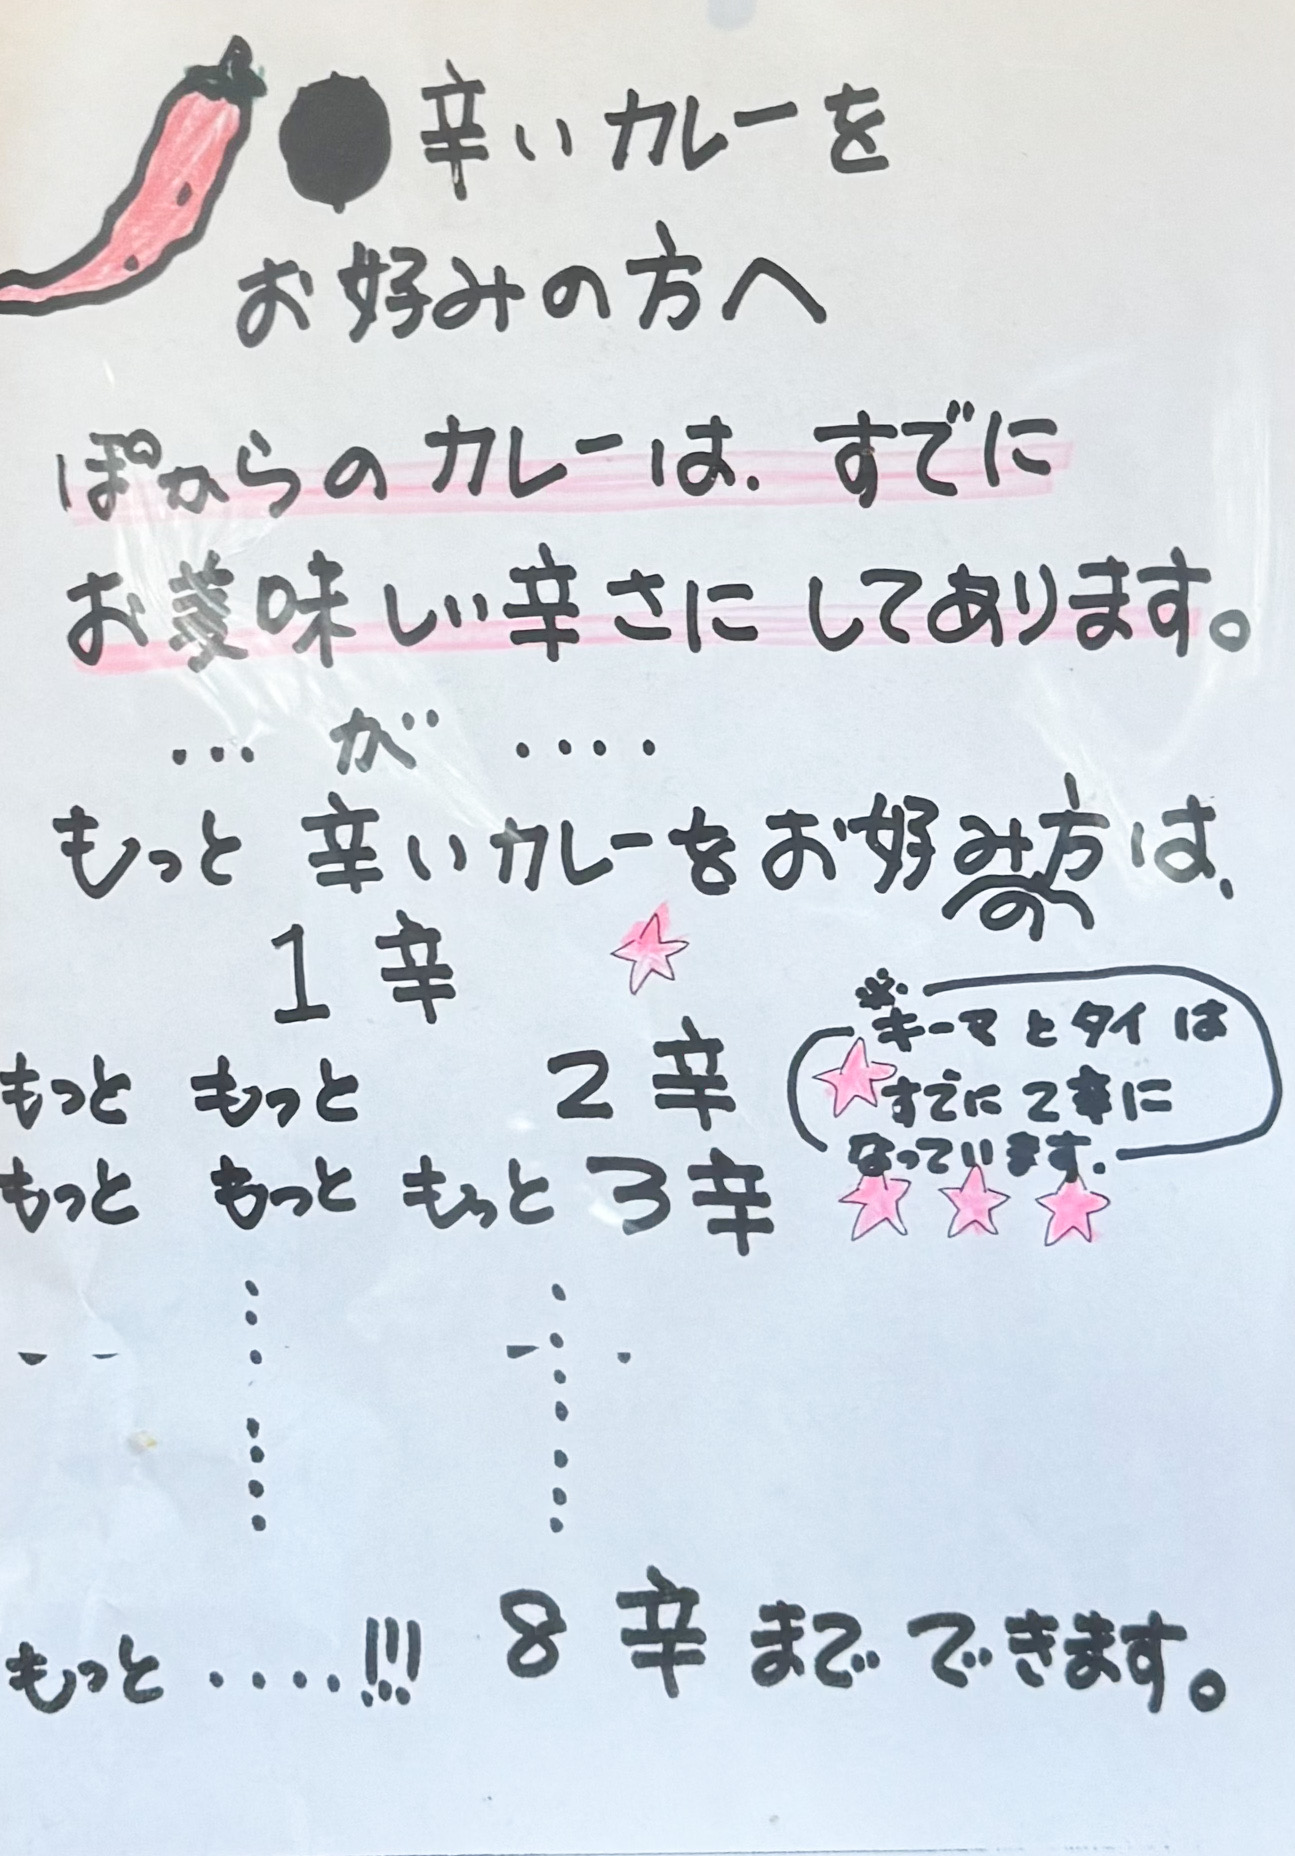 ●辛いカレーを
お好みの方へ
ぽからのカレーは、すでに
お美味しい辛さにしてあります。
… が ‥‥
もっと 辛いカレーをお好みの方は、
1 辛
もっと もっと 2 辛
もっと もっと もっと 3 辛
※
キーマとタイは
すでに2辛に
なっています.
もっと ‥‥!!! 8 辛 まで できます。